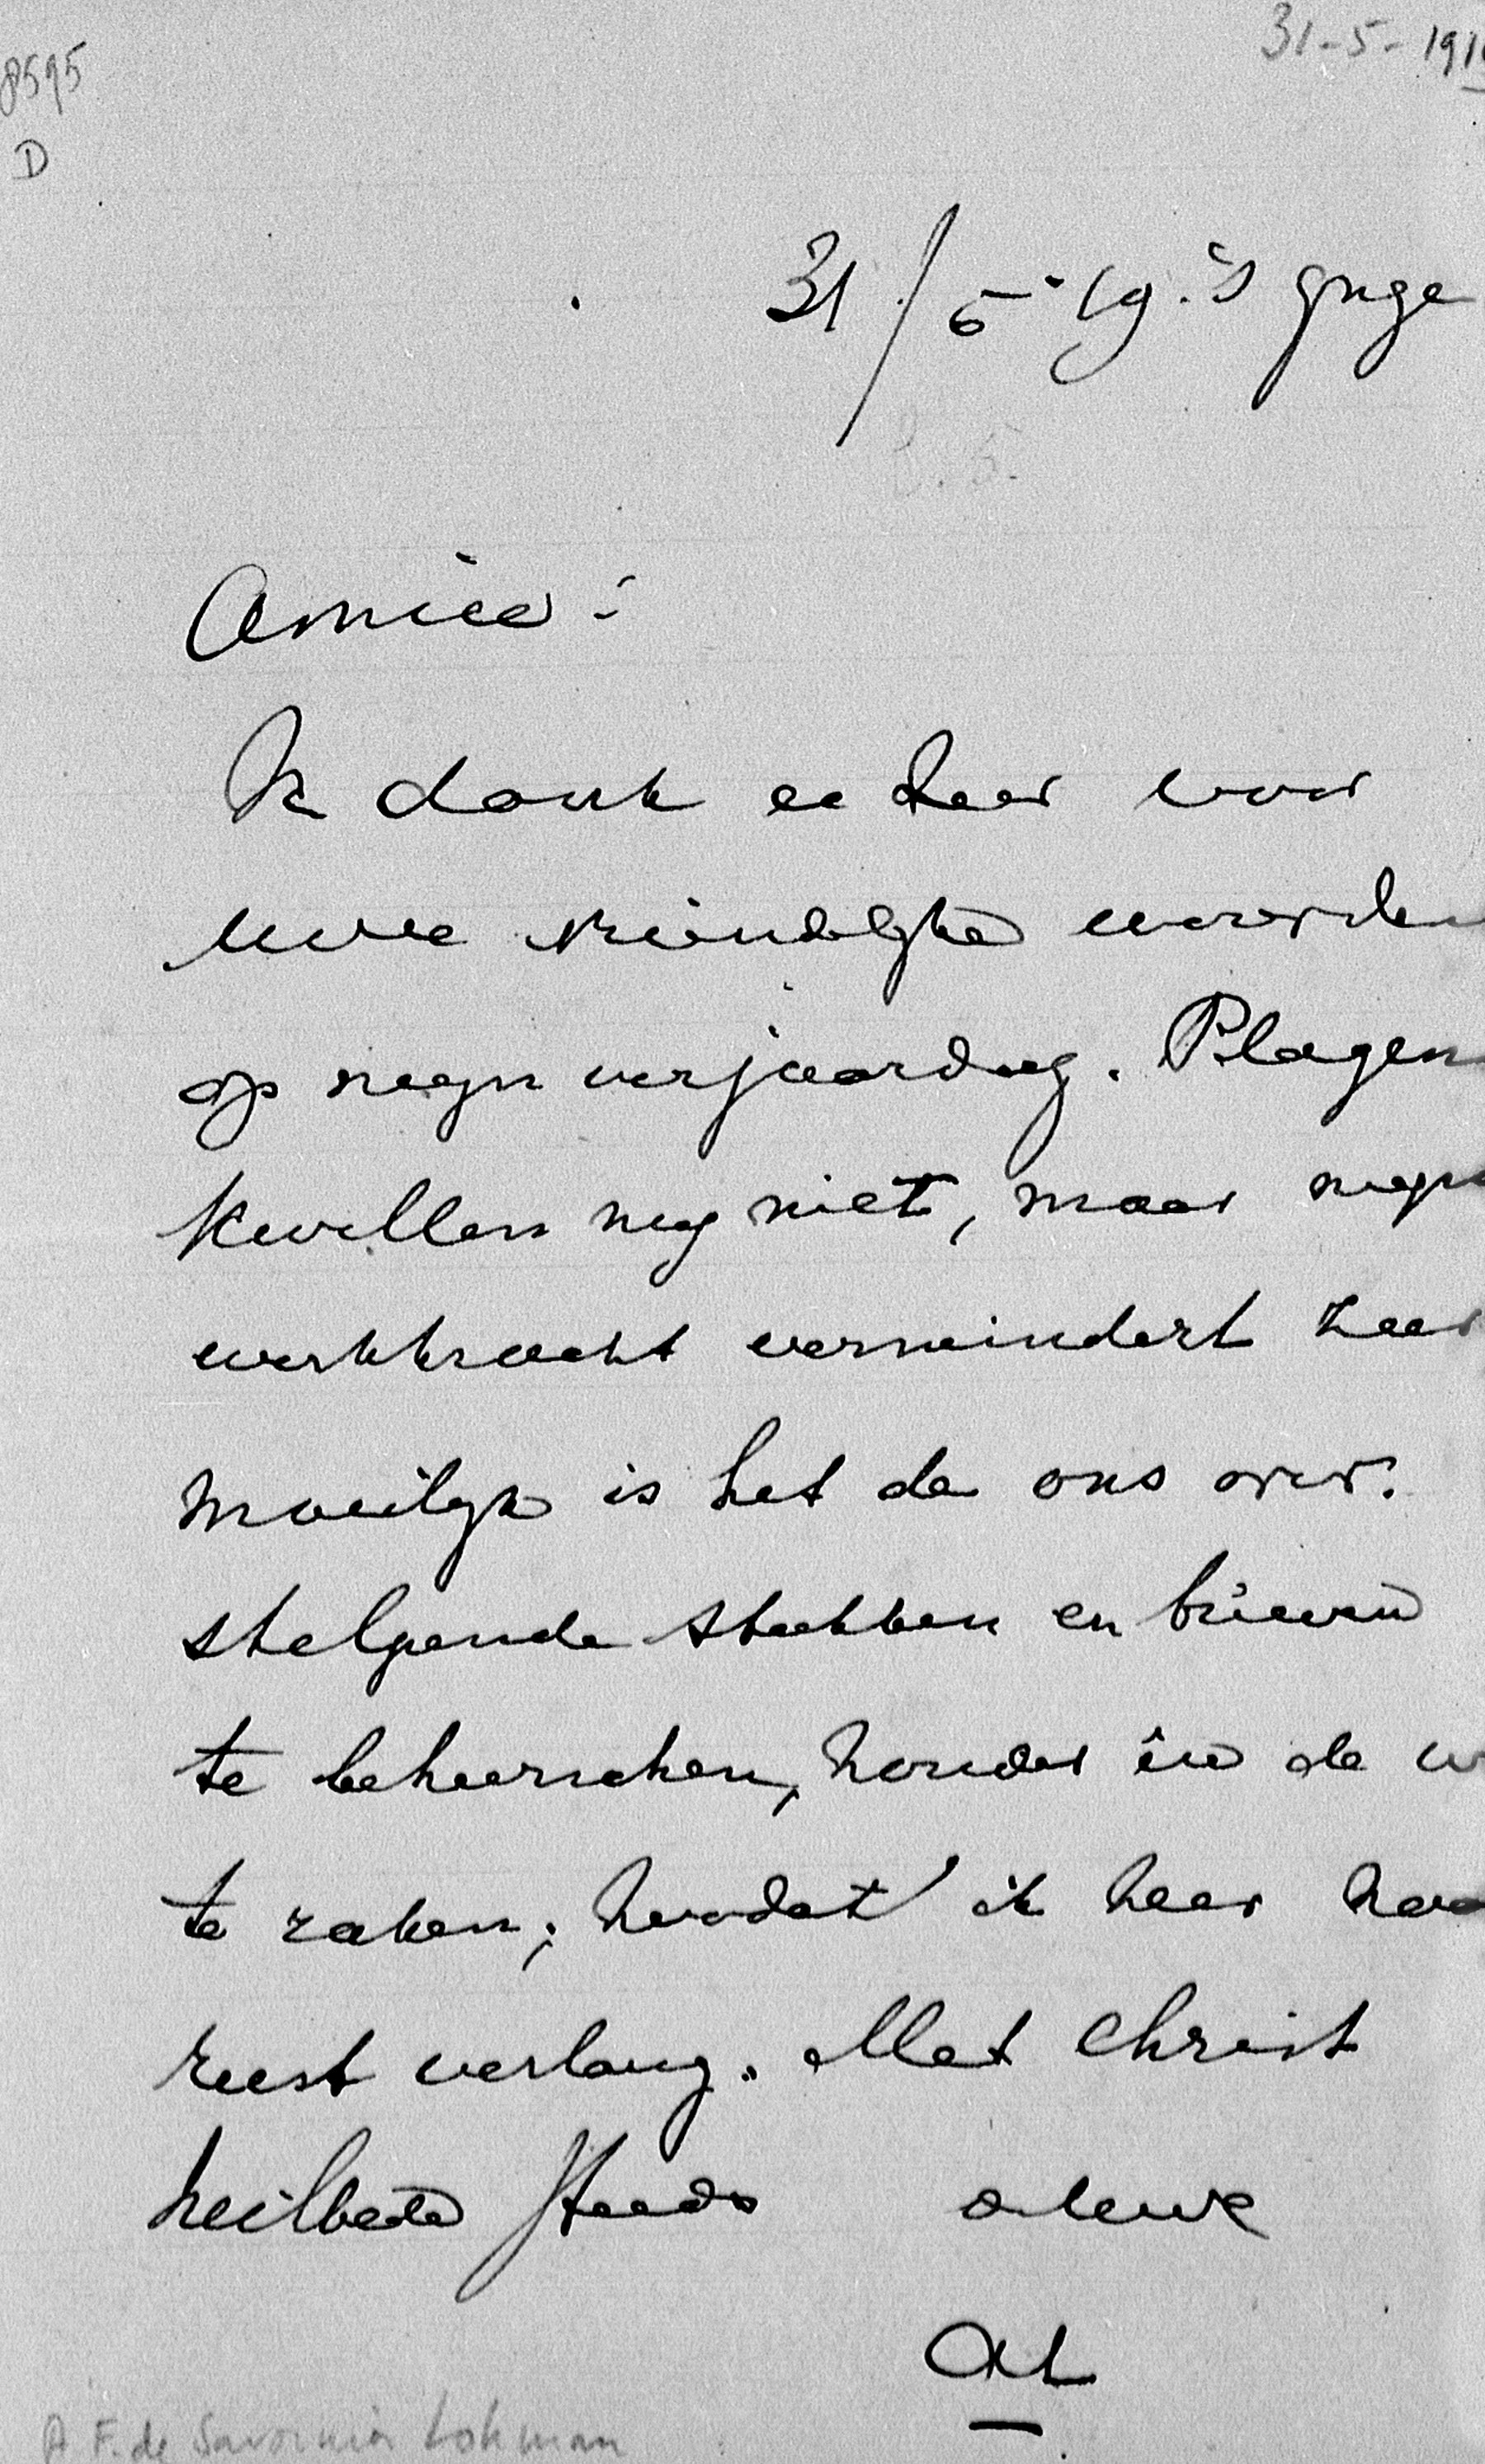 31-5-191
8595
D
31/5-19. 's Grage
Amice:
Ik dank u zeer voor
uwe vriendelijke woorden
op mijn verjaardag. Plagen
kwellen mij niet, maar mijn
werkkracht vermindert zeer
Moeilijk is het de ons over-
stelpende stukken en brieven
te beheerschen, zonder in de w
te raken; zoodat ik zeer naa
rust verlang. Met Christ
heilbede steeds de uwe
AL
A F. de Savornin Lohman